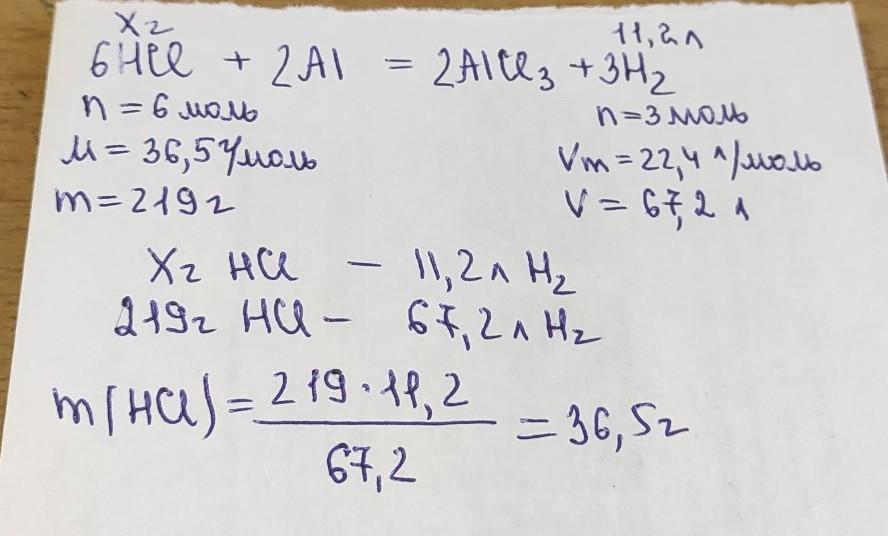 xг 11,2л
6HCl + 2Al = 2AlCl₃ + 3H₂
n = 6 моль n = 3 моль
M = 36,5 г/моль Vm = 22,4 л/моль
m = 219 г V = 67,2 л
Xг HCl – 11,2 л H₂
219г HCl – 67,2 л H₂
m(HCl) = 219 · 11,2 / 67,2 = 36,5г